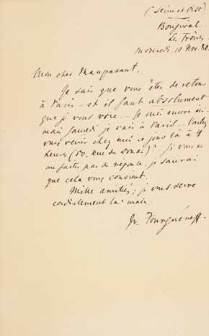 (Seine et Oise)
Bougival
Les Frênes
Mercredi, 10 Nov. 80.
Mon cher Maupassant,
Je sais que vous êtes de retour
à Paris – et il faut absolument
que je vous voie. – Je suis encore
jeudi je vais à Paris.
venir chez moi ce jour là à
heures (50, rue de Douai)? Si vous ne
me faites pas de réponse, je saurai
que cela vous convient.
Mille amitiés; je vous serre
cordialement la main.
Iv. Tourguéneff